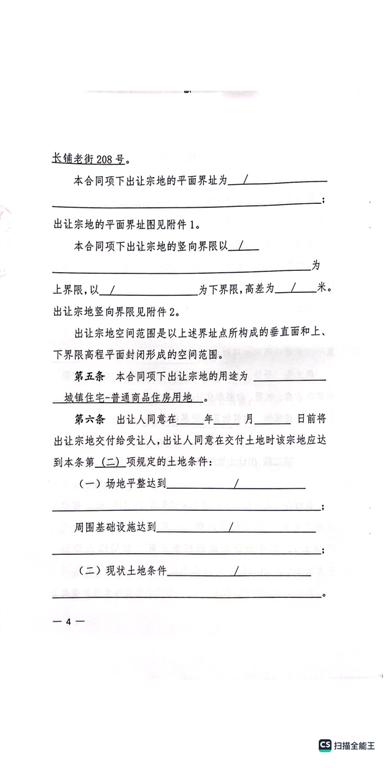 长铺老街208号。
本合同项下出让宗地的平面界址为 /
;
出让宗地的平面界址图见附件1。
本合同项下出让宗地的竖向界限以 /
为
上界限,以 / 为下界限,高差为 / 米。
出让宗地竖向界限见附件2。
出让宗地空间范围是以上述界址点所构成的垂直面和上、
下界限高程平面封闭形成的空间范围。
第五条 本合同项下出让宗地的用途为
城镇住宅-普通商品住房用地 。
第六条 出让人同意在 年 月 日前将
出让宗地交付给受让人,出让人同意在交付土地时该宗地应达
到本条第 (二) 项规定的土地条件:
(一)场地平整达到 /
;
周围基础设施达到 /
;
(二)现状土地条件 /
。
— 4 —
CS 扫描全能王